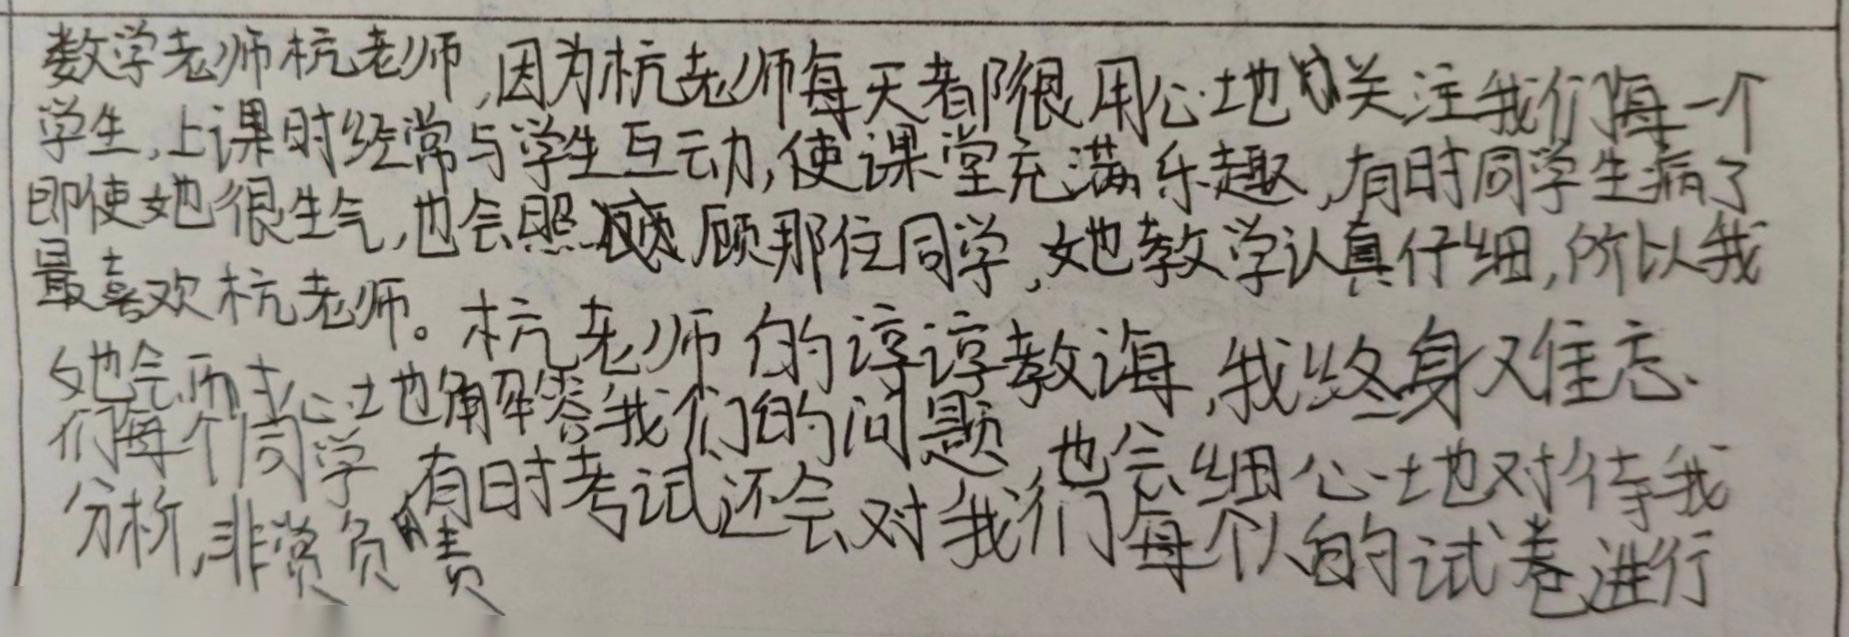 数学老师杭老师,因为杭老师每天都很用心地关注我们每一个
学生,上课时经常与学生互动,使课堂充满乐趣,有时同学生病了
即使她很生气,也会照顾那位同学,她教学认真仔细,所以我
最喜欢杭老师。杭老师的谆谆教诲,我终身难忘.
她会耐心地解答我们的问题,也会细心地对待我
们每个同学,有时考试还会对我们每个人的试卷进行
分析,非常负责